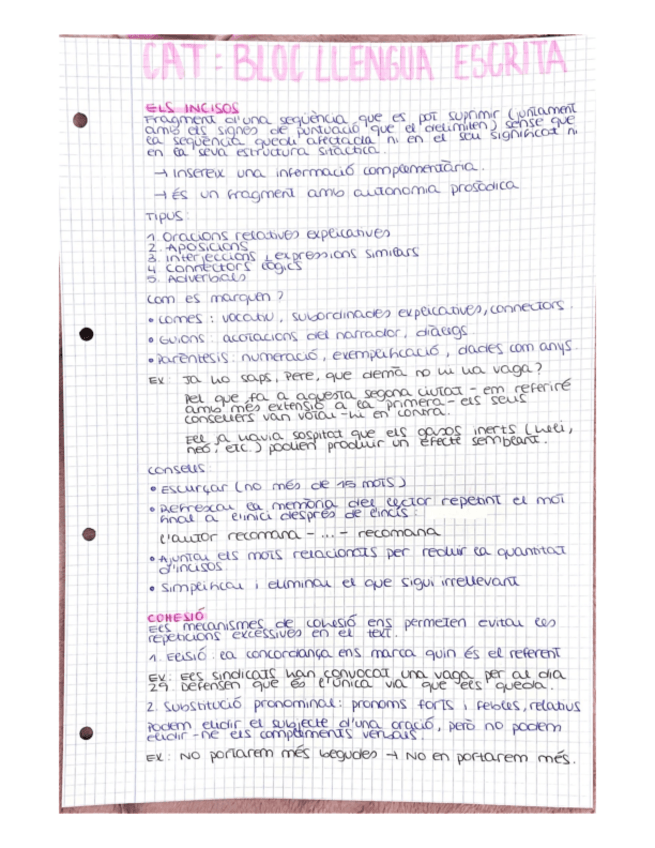 CAT: BLOC LLENGUA ESCRITA
ELS INCISOS
Fragment d'una seqüència que es pot suprimir (juntament
amb els signes de puntuació que el delimiten) sense que
la seqüència quedi afectada ni en el seu significat ni
en la seva estructura sitàctica.
→ Insereix una informació complementària.
→ És un fragment amb autonomia prosòdica
Tipus:
1. Oracions relatives explicatives
2. Aposicions
3. Interjeccions i expressions similars
4. Connectors lògics
5. Adverbials
Com es marquen?
• Comes: vocatiu, subordinades explicatives, connectors.
• Guions: acotacions del narrador, diàlegs
• Parèntesis: numeració, exemplificació, dades com anys.
Ex: Ja ho saps, Pere, que demà no hi ha vaga?
Pel que fa a aquesta segona ciutat - em referiré
amb més extensió a la primera - els seus
consellers van votar-hi en contra.
Ell ja havia sospitat que els gasos inerts (heli,
neó, etc.) podien produir un efecte semblant.
Consells:
• Escurçar (no més de 15 mots)
• Refrescar la memòria del lector repetint el mot
final a l'inici després de l'incís:
L'autor recomana - ... - recomana
• Ajuntar els mots relacionats per reduir la quantitat
d'incisos
• Simplificar i eliminar el que sigui irrellevant
COHESIÓ
Els mecanismes de cohesió ens permeten evitar les
repeticions excessives en el text.
1. Elisió: la concordança ens marca quin és el referent
Ex: Els sindicats han convocat una vaga per al dia
29. Defensen que és l'única via que els queda.
2. Substitució pronominal: pronoms forts i febles, relatius
Podem elidir el subjecte d'una oració, però no podem
elidir-ne els complements verbals.
Ex: No portarem més begudes → No en portarem més.